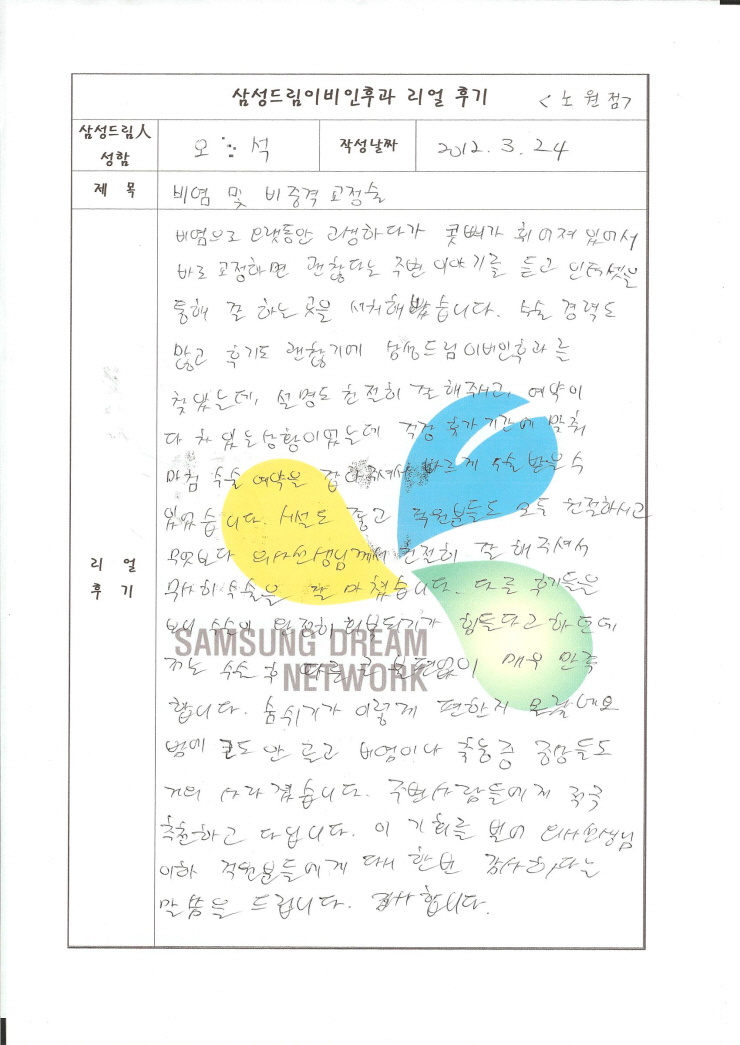 삼성드림이비인후과 리얼 후기 <노원점>
삼성드림人
성함
오 석
작성날짜
2012. 3. 24
제 목
비염 및 비중격 교정술
리 얼
후 기
비염으로 오랫동안 고생하다가 콧뼈가 휘어져 있어서
바로 교정하면 괜찮다는 주변 이야기를 듣고 인터넷을
통해 잘 하는 곳을 서치해봤습니다. 수술 경력도
많고 후기도 괜찮기에 삼성드림이비인후과를
찾았는데, 설명도 친절히 잘 해주시고, 예약이
다 차 있는상황이었는데 직장 휴가기간에 맞춰
마침 수술 예약을 잡아주셔서 빠르게 수술 받을 수
있었습니다. 시설도 좋고 직원분들도 모두 친절하시고
무엇보다 의사선생님께서 친절히 잘 해주셔서
무사히 수술을 잘 마쳤습니다. 다른 후기들을
보니 수술이 완전히 회복되기가 힘들다고 하던데
저는 수술 후 다른 큰 불편없이 매우 만족
합니다. 숨쉬기가 이렇게 편한지 몰랐네요
밤에 코도 안 골고 비염이나 축농증 증상들도
거의 사라졌습니다. 주변사람들에게 적극
추천하고 다닙니다. 이 기회를 빌어 의사선생님
이하 직원분들에게 다시 한번 감사하다는
말씀을 드립니다. 감사합니다.
SAMSUNG DREAM
NETWORK